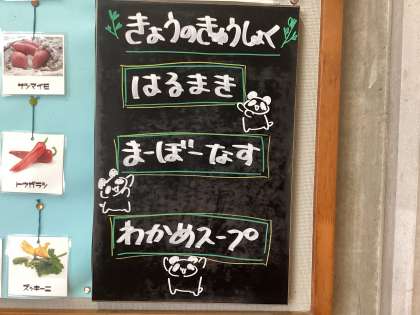 きょうのきゅうしょく
はるまき
まーぼーなす
わかめスープ
サツマイモ
トウガラシ
ズッキーニ